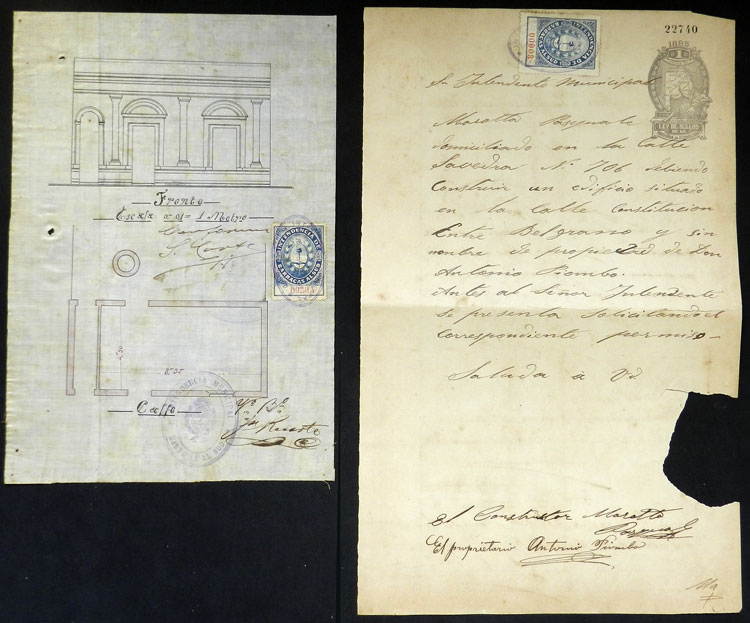 Frente
Escala 0.01 = 1 Metro
INTENDENCIA DE
BARRACAS AL SUD
Calle
Vo. Bo.
22740
1888
LEY DE SELLOS
Sr Intendente Municipal
Marotta Pasquale
domiciliado en la Calle
Savedra No. 706 debiendo
Construir un edificio situado
en la Calle Constitucion
Entre Belgrano y sin
nombre de propiedad de Don
Antonio Piombo.
Antes al Señor Intendente
Se presenta Solicitando el
correspondiente permiso-
Saluda á Vd.
El Constructor Marotta
Pasquale
El propietario Antonio Piombo